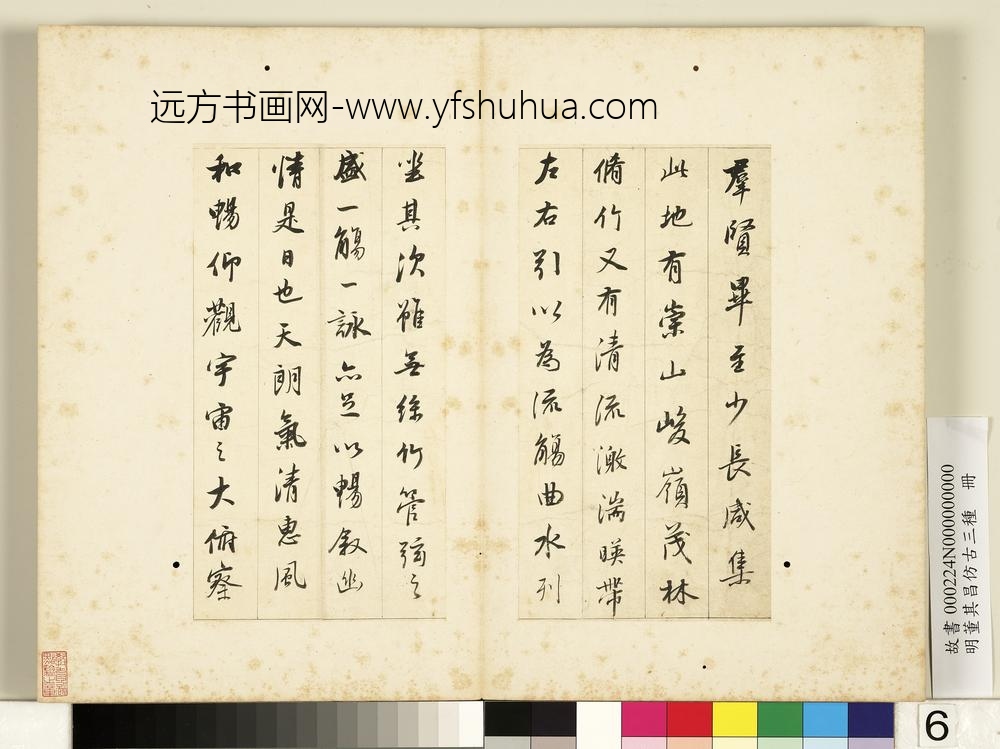 远方书画网-www.yfshuhua.com
羣賢畢至少長咸集
此地有崇山峻嶺茂林
脩竹又有清流激湍暎帶
左右引以為流觴曲水列
坐其次雖無絲竹管弦之
盛一觴一詠亦足以暢敘幽
情是日也天朗氣清惠風
和暢仰觀宇宙之大俯察
故書 000224N000000000
明董其昌仿古三種 冊
6